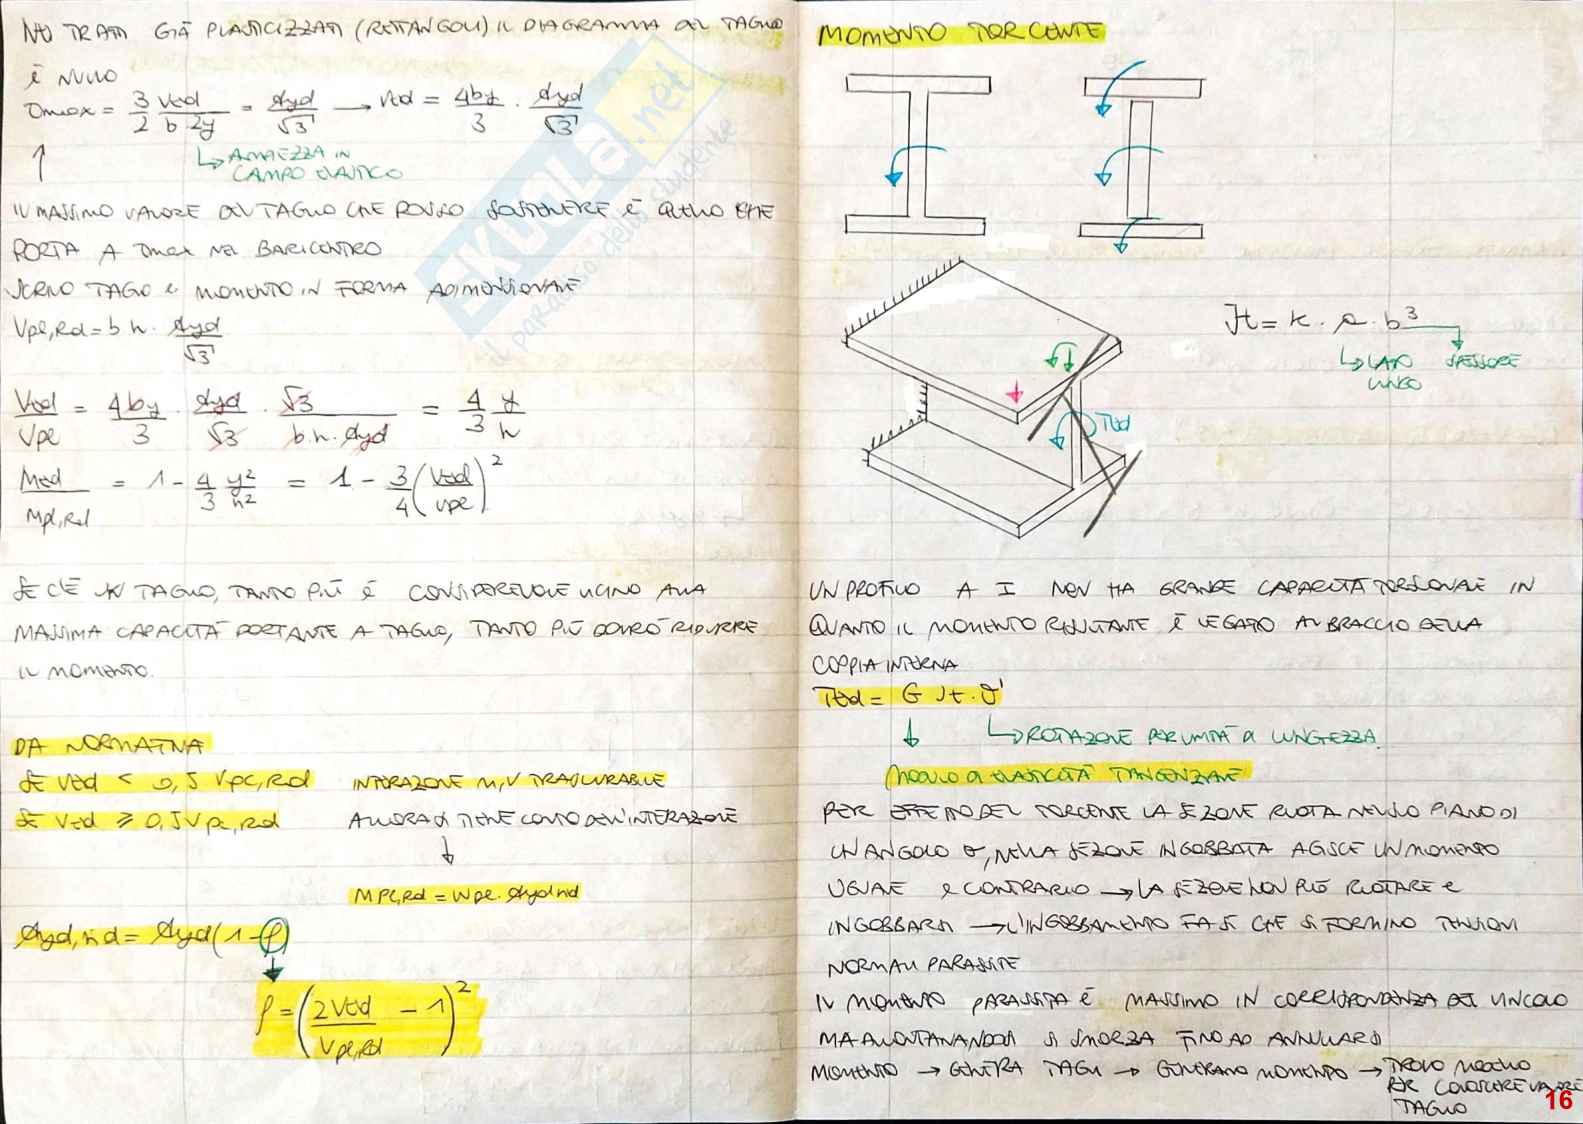 NEI TRATTI GIÀ PLASTICIZZATI (RETTANGOLI) IL DIAGRAMMA DEL TAGLIO
È NULLO
τmax = 3/2 Ved/(b 2y) = fyd/√3 → Ved = 4by/3 · fyd/√3
↳ AMPIEZZA IN
CAMPO ELASTICO
IL MASSIMO VALORE DEL TAGLIO CHE POSSO SOSTENERE È QUELLO CHE
PORTA A τmax NEL BARICENTRO
SCRIVO TAGLIO E MOMENTO IN FORMA ADIMENSIONALE
Vpl,Rd = b h · fyd/√3
Ved/Vpl = 4by/3 · fyd/√3 · √3/(b·h·fyd) = 4/3 y/h
Med/Mpl,Rd = 1 - 4/3 y²/h² = 1 - 3/4 (Ved/Vpl)²
SE C'È UN TAGLIO, TANTO PIÙ È CONSIDEREVOLE VICINO ALLA
MASSIMA CAPACITÀ PORTANTE A TAGLIO, TANTO PIÙ DOVRÒ RIDURRE
IL MOMENTO.
DA NORMATIVA
SE Ved < 0,5 Vpl,Rd INTERAZIONE M,V TRASCURABILE
SE Ved ≥ 0,5 Vpl,Rd ALLORA SI TIENE CONTO DELL'INTERAZIONE
↓
Mpl,Rd = Wpl · fyd,rid
fyd,rid = fyd (1 - ρ)
ρ = (2Ved/Vpl,Rd - 1)²
MOMENTO TORCENTE
Jt = k · a · b³
↳ LATO LUNGO
SPESSORE
Ted
UN PROFILO A I NON HA GRANDE CAPACITÀ TORSIONALE IN
QUANTO IL MOMENTO RISULTANTE È LEGATO AL BRACCIO DELLA
COPPIA INTERNA
Ted = G Jt · θ'
↳ ROTAZIONE PER UNITÀ DI LUNGHEZZA.
MODULO DI ELASTICITÀ TANGENZIALE
PER EFFETTO DEL TORCENTE LA SEZIONE RUOTA NELLO PIANO DI
UN ANGOLO θ, NELLA SEZIONE INGOBBATA AGISCE UN MOMENTO
UGUALE E CONTRARIO → LA SEZIONE NON PUÒ RUOTARE E
INGOBBARSI → L'INGOBBAMENTO FA SÌ CHE SI FORMINO TENSIONI
NORMALI PARASSITE
IL MOMENTO PARASSITA È MASSIMO IN CORRISPONDENZA DEL VINCOLO
MA ALLONTANANDOSI SI SMORZA FINO AD ANNULLARSI
MOMENTO → GENERA TAGLI → GENERANO MOMENTO → TROVO MOMENTO
PER CONOSCERE VALORE
TAGLIO
SKUOLA.net
il paradiso dello studente
16